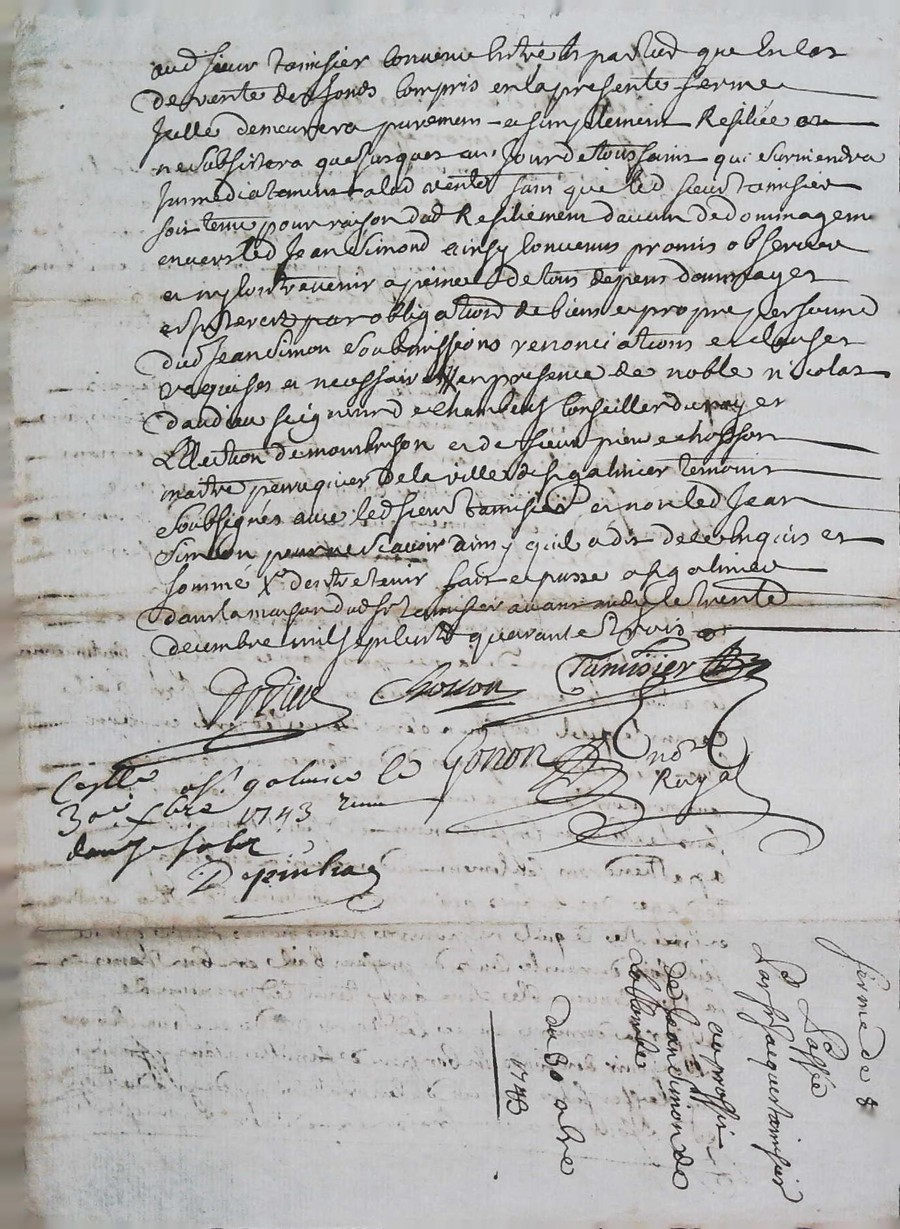 aud sieur tamisier convenu entre les parties que en cas
de vente des fonds compris en la presente ferme
Icelle demeurera purement et simplement Resiliée et
ne subsistera que jusques au jour de toussaint qui surviendra
Immediatement a lad vente sans que led sieur tamisier
soit tenu pour raison dud Resiliement daucun dedommagem
envers led Jean Simond ainsy convenus promis observer
et ny contrevenir a peine de tous depens dommages
et Interets par obligations de biens et propre personne
dud Jean Simon soubmissions renonciations et clauses
requises et necessaires en presence de noble nicolas
dandieu seigneur de chambeuf Conseiller du roy en
LElection de montbrison et de sieur pierre chosson
maitre perruquier de la ville de st galmier temoins
soubsignés avec led sieur tamisier et non led Jean
Simon pour ne scavoir ainsy quil a dit de ce enquis et
sommé fait et passe a st galmier
dans la maison dud sr tamisier avant midy le trente
decembre mil sept cent quarante trois
Chosson Tamisier
Gonon no.re
Royal
Co.lle a st galmier le
30e xbre 1743
douze sols
ferme de 8
Par sr Jacques tamisier
au proffit
de Jean Simon de
du 30 xbre
1743